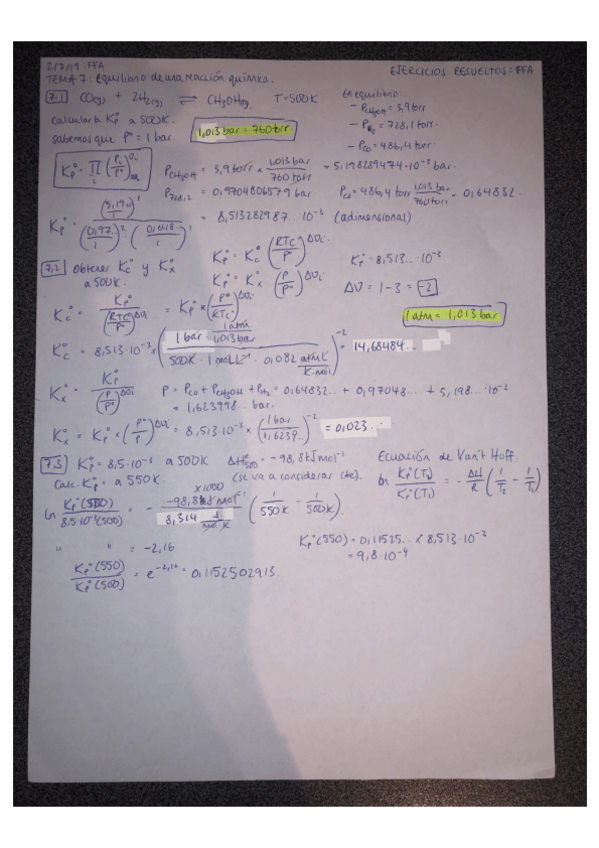 2/7/19 FFA
TEMA 7: Equilibrio de una reacción química.
EJERCICIOS RESUELTOS = FFA
7.1 CO(g) + 2H2(g) ⇌ CH3OH(g) T=500K
En equilibrio:
- PCH3OH = 3,9 torr
- PH2 = 728,1 torr
- PCO = 486,4 torr
calcular la Kp° a 500K.
sabemos que P° = 1 bar.
1,013 bar = 760 torr
Kp° = ∏i (Pi/P°)^νi
PCH3OH = 3,9 torr × 1,013 bar / 760 torr = 5,198289474·10⁻³ bar.
= 0,9704806579 bar
PCO = 486,4 torr 1,013 bar / 760 torr = 0,64832
Kp° = / (0,97.. / 1)² (0,648.. / 1)¹ = 8,513282987.. 10⁻³ (adimensional)
7.2 Obtener Kc° y Kx° a 500K.
Kp° = Kc° (RTC°/P°)^Δνi
Kp° = Kx° (P/P°)^Δνi
Kp° = 8,513.. ·10⁻³
Δν = 1-3 = -2
1 atm = 1,013 bar
Kc° = Kp° / (RTC°/P°)^Δνi = Kp° × (P°/RTC°)^Δνi
Kc° = 8,513·10⁻³ × (1 bar · 1 atm / 1,013 bar / 500K · 1 mol L⁻¹ · 0,082 atm L / K mol)⁻² = 14,68484..
Kx° = Kp° / (P/P°)^Δνi
P = PCO + PCH3OH + PH2 = 0,64832.. + 0,97048.. + 5,198.. 10⁻²
= 1,623998.. bar.
Kx° = Kp° × (P°/P)^Δνi = 8,513·10⁻³ × (1 bar / 1,6239..)⁻² = 0,023..
7.3 Kp° = 8,5·10⁻³ a 500K ΔH°500 = -98,8 kJ mol⁻¹
Calc. Kp° a 550K. (se va a considerar cte).
Ecuación de Van't Hoff.
ln Kp°(T2) / Kp°(T1) = - ΔH/R (1/T2 - 1/T1)
×1000
ln Kp°(550) / 8,5·10⁻³(500) = - -98,8 kJ mol⁻¹ / 8,314 J / mol·K (1/550K - 1/500K).
" " = -2,16
Kp°(550) / Kp°(500) = e^-2,16 = 0,1152502913.
Kp°(550) = 0,11525.. × 8,513·10⁻³
= 9,8·10⁻⁴